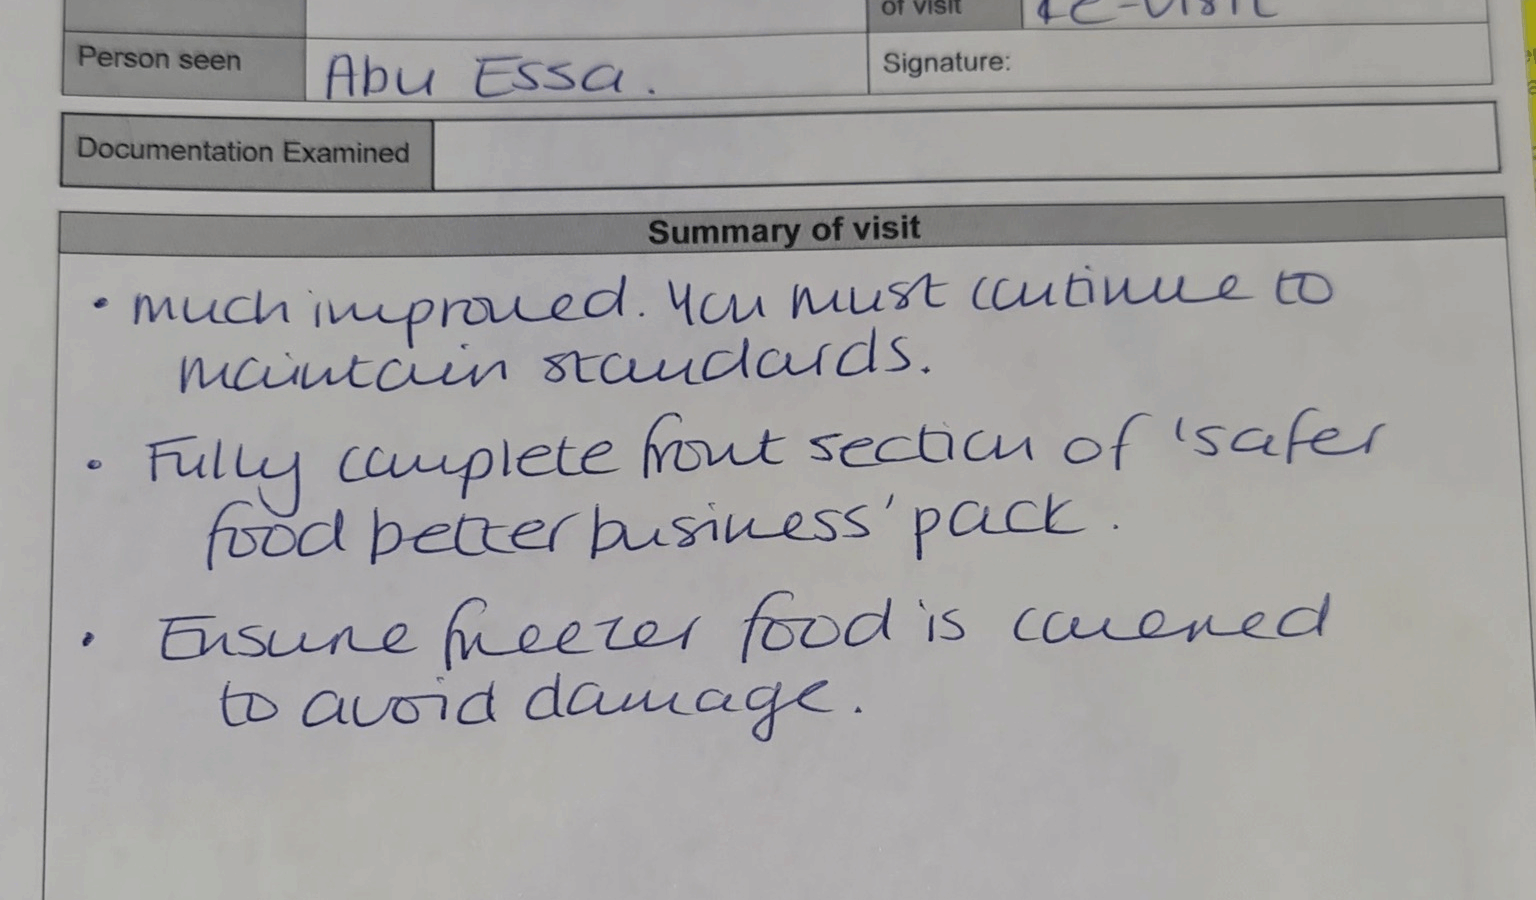 of visit re-visit
Person seen Abu Essa. Signature:
Documentation Examined
Summary of visit
• much improved. You must continue to
maintain standards.
• Fully complete front section of 'safer
food better business' pack.
• Ensure freezer food is covered
to avoid damage.